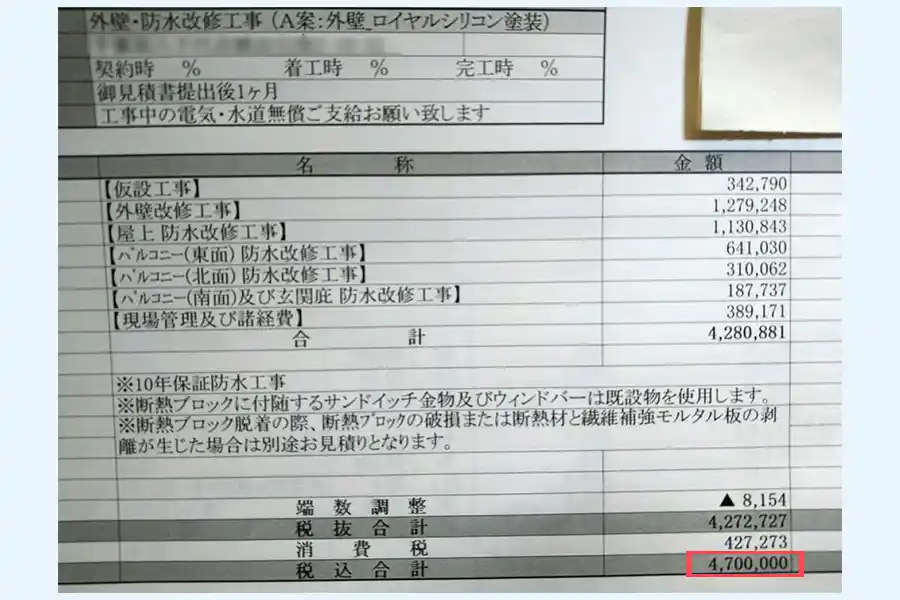 外壁・防水改修工事（A案：外壁_ロイヤルシリコン塗装）
契約時 % 着工時 % 完工時 %
御見積書提出後1ヶ月
工事中の電気・水道無償ご支給お願い致します
名 称 金 額
【仮設工事】 342,790
【外壁改修工事】 1,279,248
【屋上 防水改修工事】 1,130,843
【ﾊﾞﾙｺﾆｰ(東面) 防水改修工事】 641,030
【ﾊﾞﾙｺﾆｰ(北面) 防水改修工事】 310,062
【ﾊﾞﾙｺﾆｰ(南面)及び玄関庇 防水改修工事】 187,737
【現場管理及び諸経費】 389,171
合 計 4,280,881
※10年保証防水工事
※断熱ブロックに付随するサンドイッチ金物及びウィンドバーは既設物を使用します。
※断熱ブロック脱着の際、断熱ﾌﾞﾛｯｸの破損または断熱材と繊維補強モルタル板の剥
離が生じた場合は別途お見積りとなります。
端 数 調 整 ▲ 8,154
税 抜 合 計 4,272,727
消 費 税 427,273
税 込 合 計 4,700,000